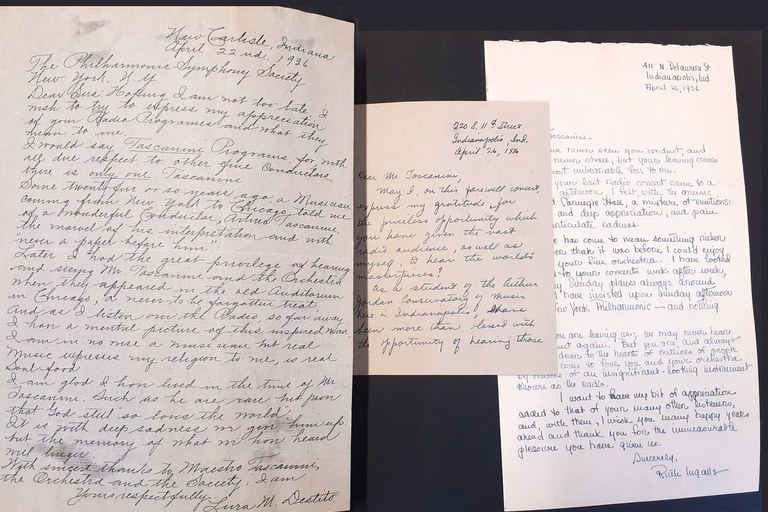 New Carlisle, Indiana
April 22nd, 1936
The Philharmonic Symphony Society
New York. N Y
Dear Sirs. Hoping I am not too late I
wish to try to express my appreciation
of your Radio Programes and what they
mean to me.
I would say Toscanini Programs, for with
all due respect to other fine Conductors
there is only one Toscanini.
Some twenty five or so years ago, a Musician
coming from New York to Chicago, told me
of a Wonderful Conductor, Arturo Toscanini.
the marvel of his interpretation and with
never a paper before him"
Later I had the great privilege of hearing
and seeing Mr Toscanini and the Orchestra
when they appeared in the old Auditorium
in Chicago, a never to be forgotten treat
And as I listen over the Radio, so far away,
I have a mental picture of this inspired man
I am in no wise a musician but real
Music expresses my religion to me, is real
Soul food
I am glad I have lived in the time of Mr
Toscanini. Such as he are rare but prove
that God still so loves the world.
It is with deep sadness we give him up.
but the memory of what we have heard
will linger
With sincere thanks to Maestro Toscanini,
the Orchestra and the Society. I am
Yours respectfully
Lura M. Destito.
220 E. 11th Street
Indianapolis, Ind.
April 26, 1936
Dear Mr. Toscanini,
May I, on this farewell concert,
express my gratitude for
the priceless opportunity which
you have given the vast
radio audience, as well as
myself, to hear the world's
masterpieces?
As a student of the Arthur
Jordan Conservatory of Music
here in Indianapolis I have
been more than blessed with
the opportunity of hearing those
411 N. Delaware St
Indianapolis, Ind.
April 26, 1936
Toscanini-
never seen you conduct, and
never chance, but your leaving causes
almost unbearable loss to me.
years last radio concert came to a
afternoon, I felt, with the audience
at Carnegie Hall, a mixture of emotions:
and deep appreciation, and pain
inarticulate sadness.
has come to mean something richer
than it was before I could enjoy
your fine orchestra. I have looked
to your concerts week after week,
my Sunday plans always around
I have insisted upon Sunday afternoon
New York Philharmonic — and nothing
you are leaving us; we may never hear
conduct again. But you are and always
dear to the hearts of millions of people
come to love you and your orchestra
by means of an insignificant-looking instrument
known as the radio.
I want to have my bit of appreciation
added to that of your many other listeners,
and, with them, I wish you many happy years
ahead and thank you for the immeasurable
pleasure you have given us.
Sincerely,
Ruth Ingalls